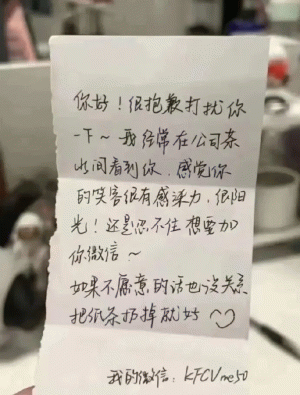 你好！很抱歉打扰你
一下～我经常在公司茶
水间看到你，感觉你
的笑容很有感染力，很阳
光！还是忍不住想要加
你微信～
如果不愿意的话也没关系
把纸条扔掉就好
我的微信：KFCVme50